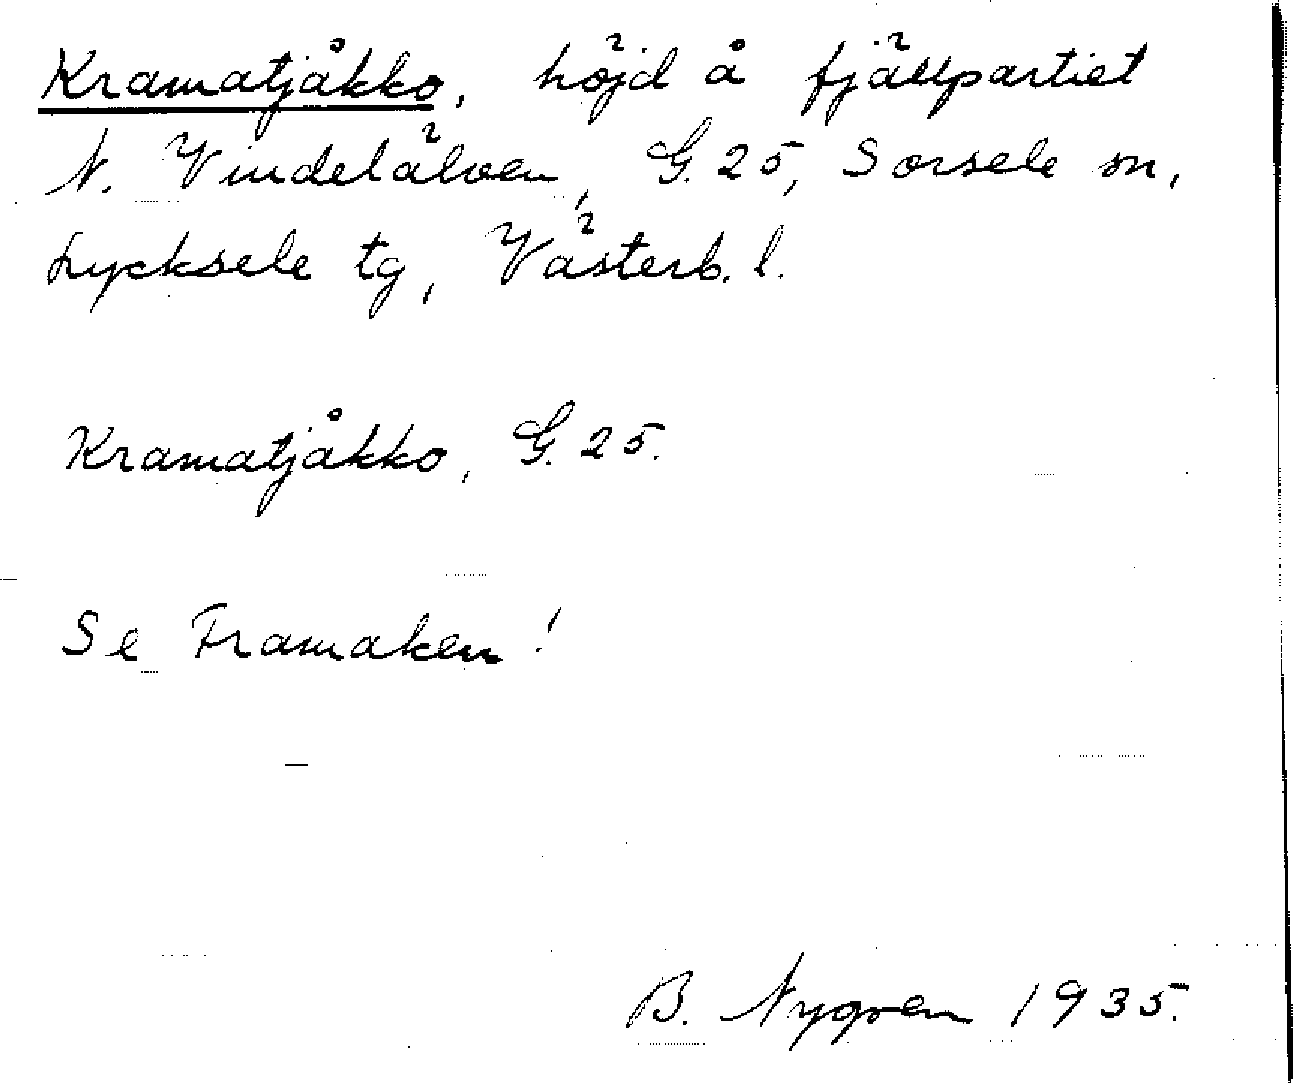 Kramatjåkko, höjd å fjällpartiet
N. Vindelälven, G. 25, Sorsele sn,
Lycksele tg, Västerb. l.
Kramatjåkko, G. 25.
Se Framaken!
B. Nygren 1935.